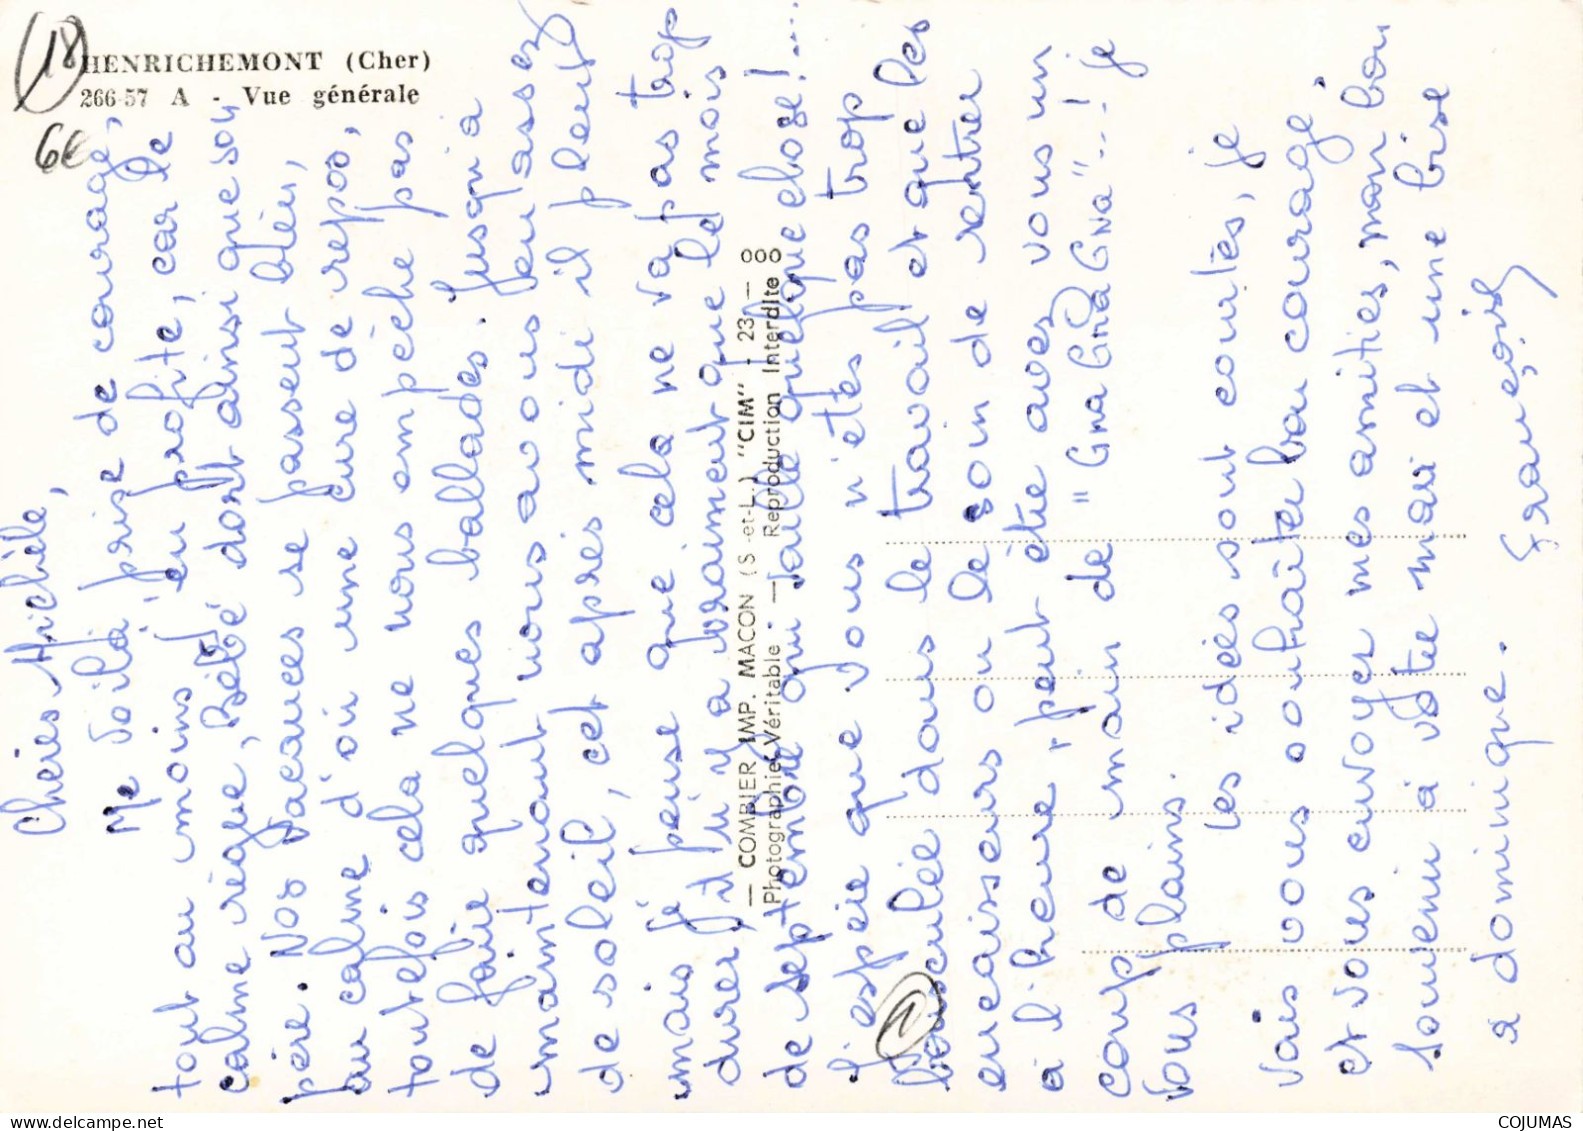 18
HENRICHEMONT (Cher)
266-57 A - Vue générale
Chères Michèle,
Me voilà prise de courage,
tout au moins j'en profite, car le
calme règne, Bébé dort ainsi que son
père. Nos vacances se passent bien,
au calme d'où une cure de repos,
toutefois cela ne nous empêche pas
de faire quelques ballades. Jusqu'à
maintenant nous avons peu assez
de soleil, cet après midi il pleut
mais je pense que cela ne va pas trop
durer, il n'y a vraiment que le mois
de septembre qui vaille quelque chose!...
J'espère que vous n'êtes pas trop
bousculée dans le travail et que les
encaisseurs on le soin de rentrer
à l'heure, peut être avez vous un
coup de main de "Gna Gna Gna"...! je
vous plains.
Les idées sont courtes, je
vais vous souhaiter bon courage,
et vous envoyer mes amitiés, mon bon
souvenir à votre mari et une bise
à dominique.
Françoise
— COMBIER IMP. MACON (S.-et-L.) "CIM" - 23 —
Photographie Véritable — Reproduction Interdite
COJUMAS